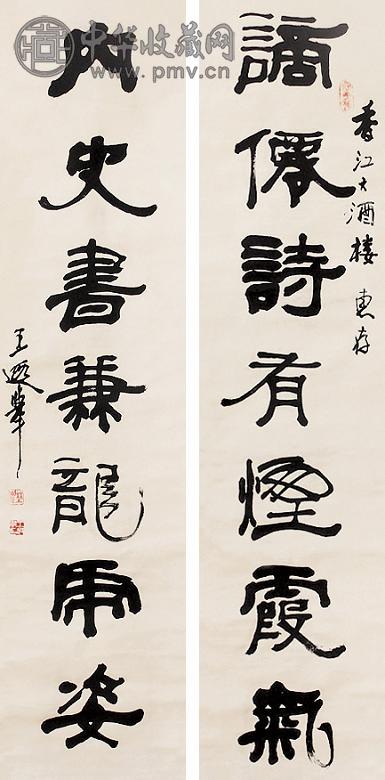 中华收藏网
www.pmv.cn
謫僊詩有煙霞氣
香江大酒楼 惠存
内史書兼龍虎姿
王遐舉